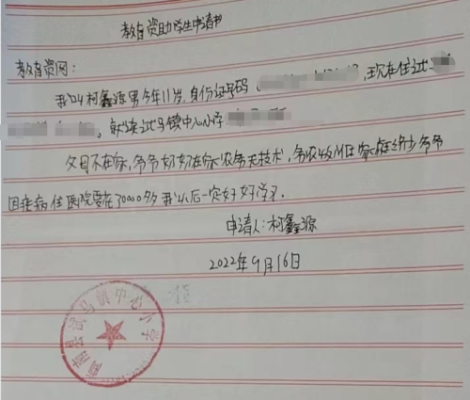 教育资助学生申请书
教育资网：
我叫柯鑫源男今年11岁,身份证号码,现在住试
,就读试马镇中心小学
父母不在家,爷爷奶奶在家农务无技术,务农收入低,家庭缺少爷爷
因疾病住医院要在30000多我以后一定好好学习.
申请人:柯鑫源
2022年9月16日
商南县试马镇中心小学